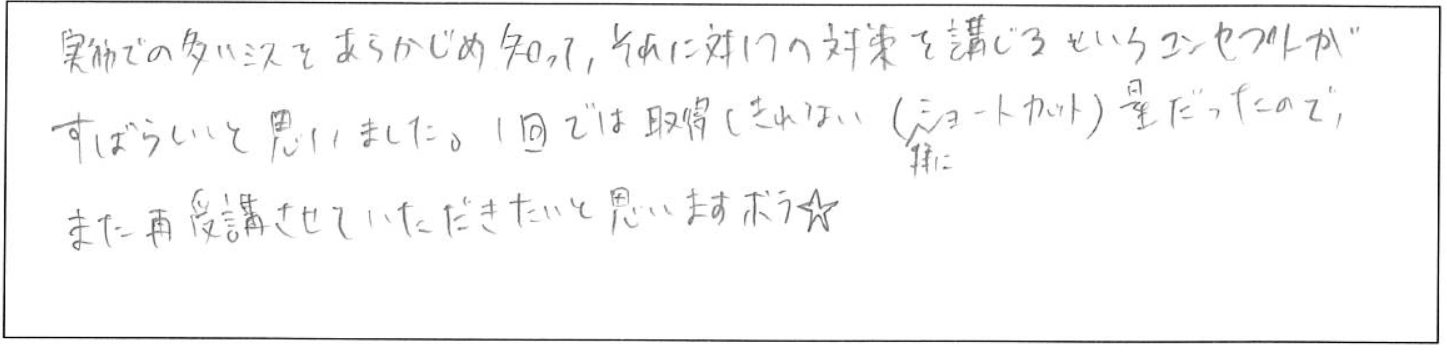 実務での多いミスをあらかじめ知って、それに対しての対策を講じるというコンセプトが
すばらしいと思いました。1回では取得しきれない(特にショートカット)量だったので、
また再受講させていただきたいと思いますボラ☆